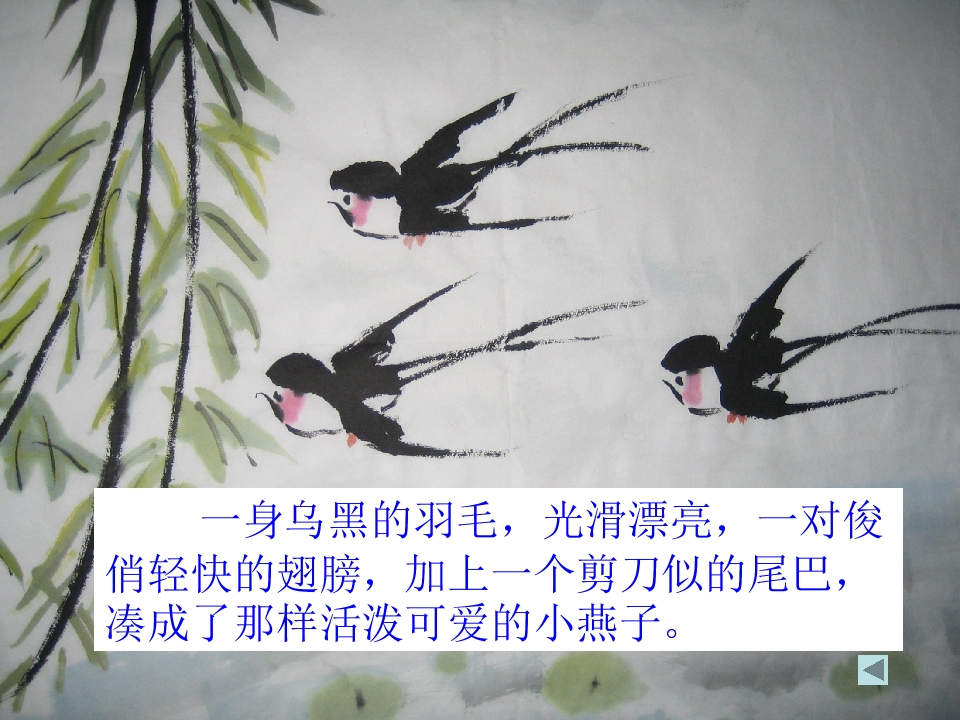 一身乌黑的羽毛，光滑漂亮，一对俊
俏轻快的翅膀，加上一个剪刀似的尾巴，
凑成了那样活泼可爱的小燕子。